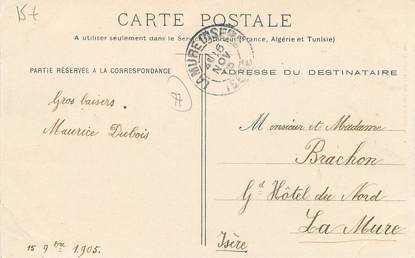 15 t
CARTE POSTALE
A utiliser seulement dans le Service Intérieur (France, Algérie et Tunisie)
PARTIE RÉSERVÉE A LA CORRESPONDANCE
ADRESSE DU DESTINATAIRE
LA MURE D'ISERE
16
NOV
05
ISERE
Gros baisers.
Maurice Dubois
Monsieur et Madame
Brachon
Gd Hôtel du Nord
La Mure
Isère
15 9bre 1905.